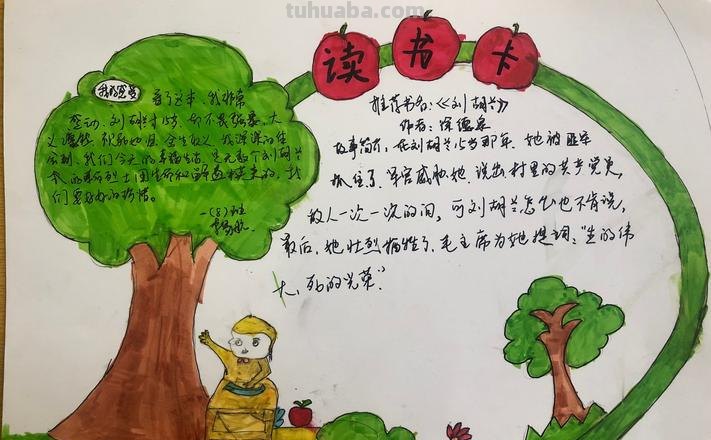 tuhuaba.com
读书卡
我的感受
看了这本,我非常
感动,刘胡兰才15岁,却不畏强暴,大
义凛然,视死如归,舍生取义,我深深的体
会到,我们今天的幸福生活,是无数个刘胡兰
的革命烈士用生命和鲜血换来的,我
们要好好的珍惜。
一(8)班
推荐书名:《刘胡兰》
作者:徐德泉
故事简介:在刘胡兰15岁那年,她被匪军
抓住了,军官威胁她,说出村里的共产党员,
敌人一次一次的问,可刘胡兰怎么也不肯说,
最后,她壮烈牺牲了,毛主席为她提词:“生的伟
大,死的光荣”